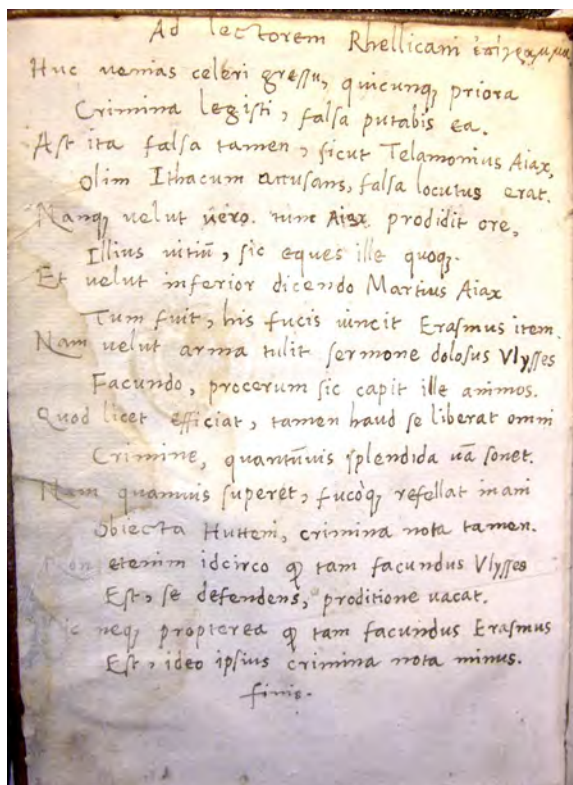 Ad lectorem Rhellicani ἐπίγραμμα
Huc uenias celeri gressu, quicunq; priora
Crimina legisti, falsa putabis ea.
Ast ita falsa tamen, sicut Telamonius Aiax,
Olim Ithacum accusans, falsa locutus erat.
Nanq; uelut uero tunc Aiax prodidit ore,
Illius uitiū, sic eques ille quoq;.
Et uelut inferior dicendo Martius Aiax
Tum fuit, his fucis uincit Erasmus item.
Nam uelut arma tulit sermone dolosus Vlysses
Facundo, procerum sic capit ille animos.
Quod licet efficiat, tamen haud se liberat omni
Crimine, quantūuis splendida sonet.
Nam quamuis superet, fucoq; refellat inani
Obiecta Hutteni, crimina nota tamen.
Non etenim idcirco ꝙ tam facundus Vlysses
Est, se defendens, proditione uacat.
Sic neq; propterea ꝙ tam facundus Erasmus
Est, ideo ipsius crimina nota minus.
finis.